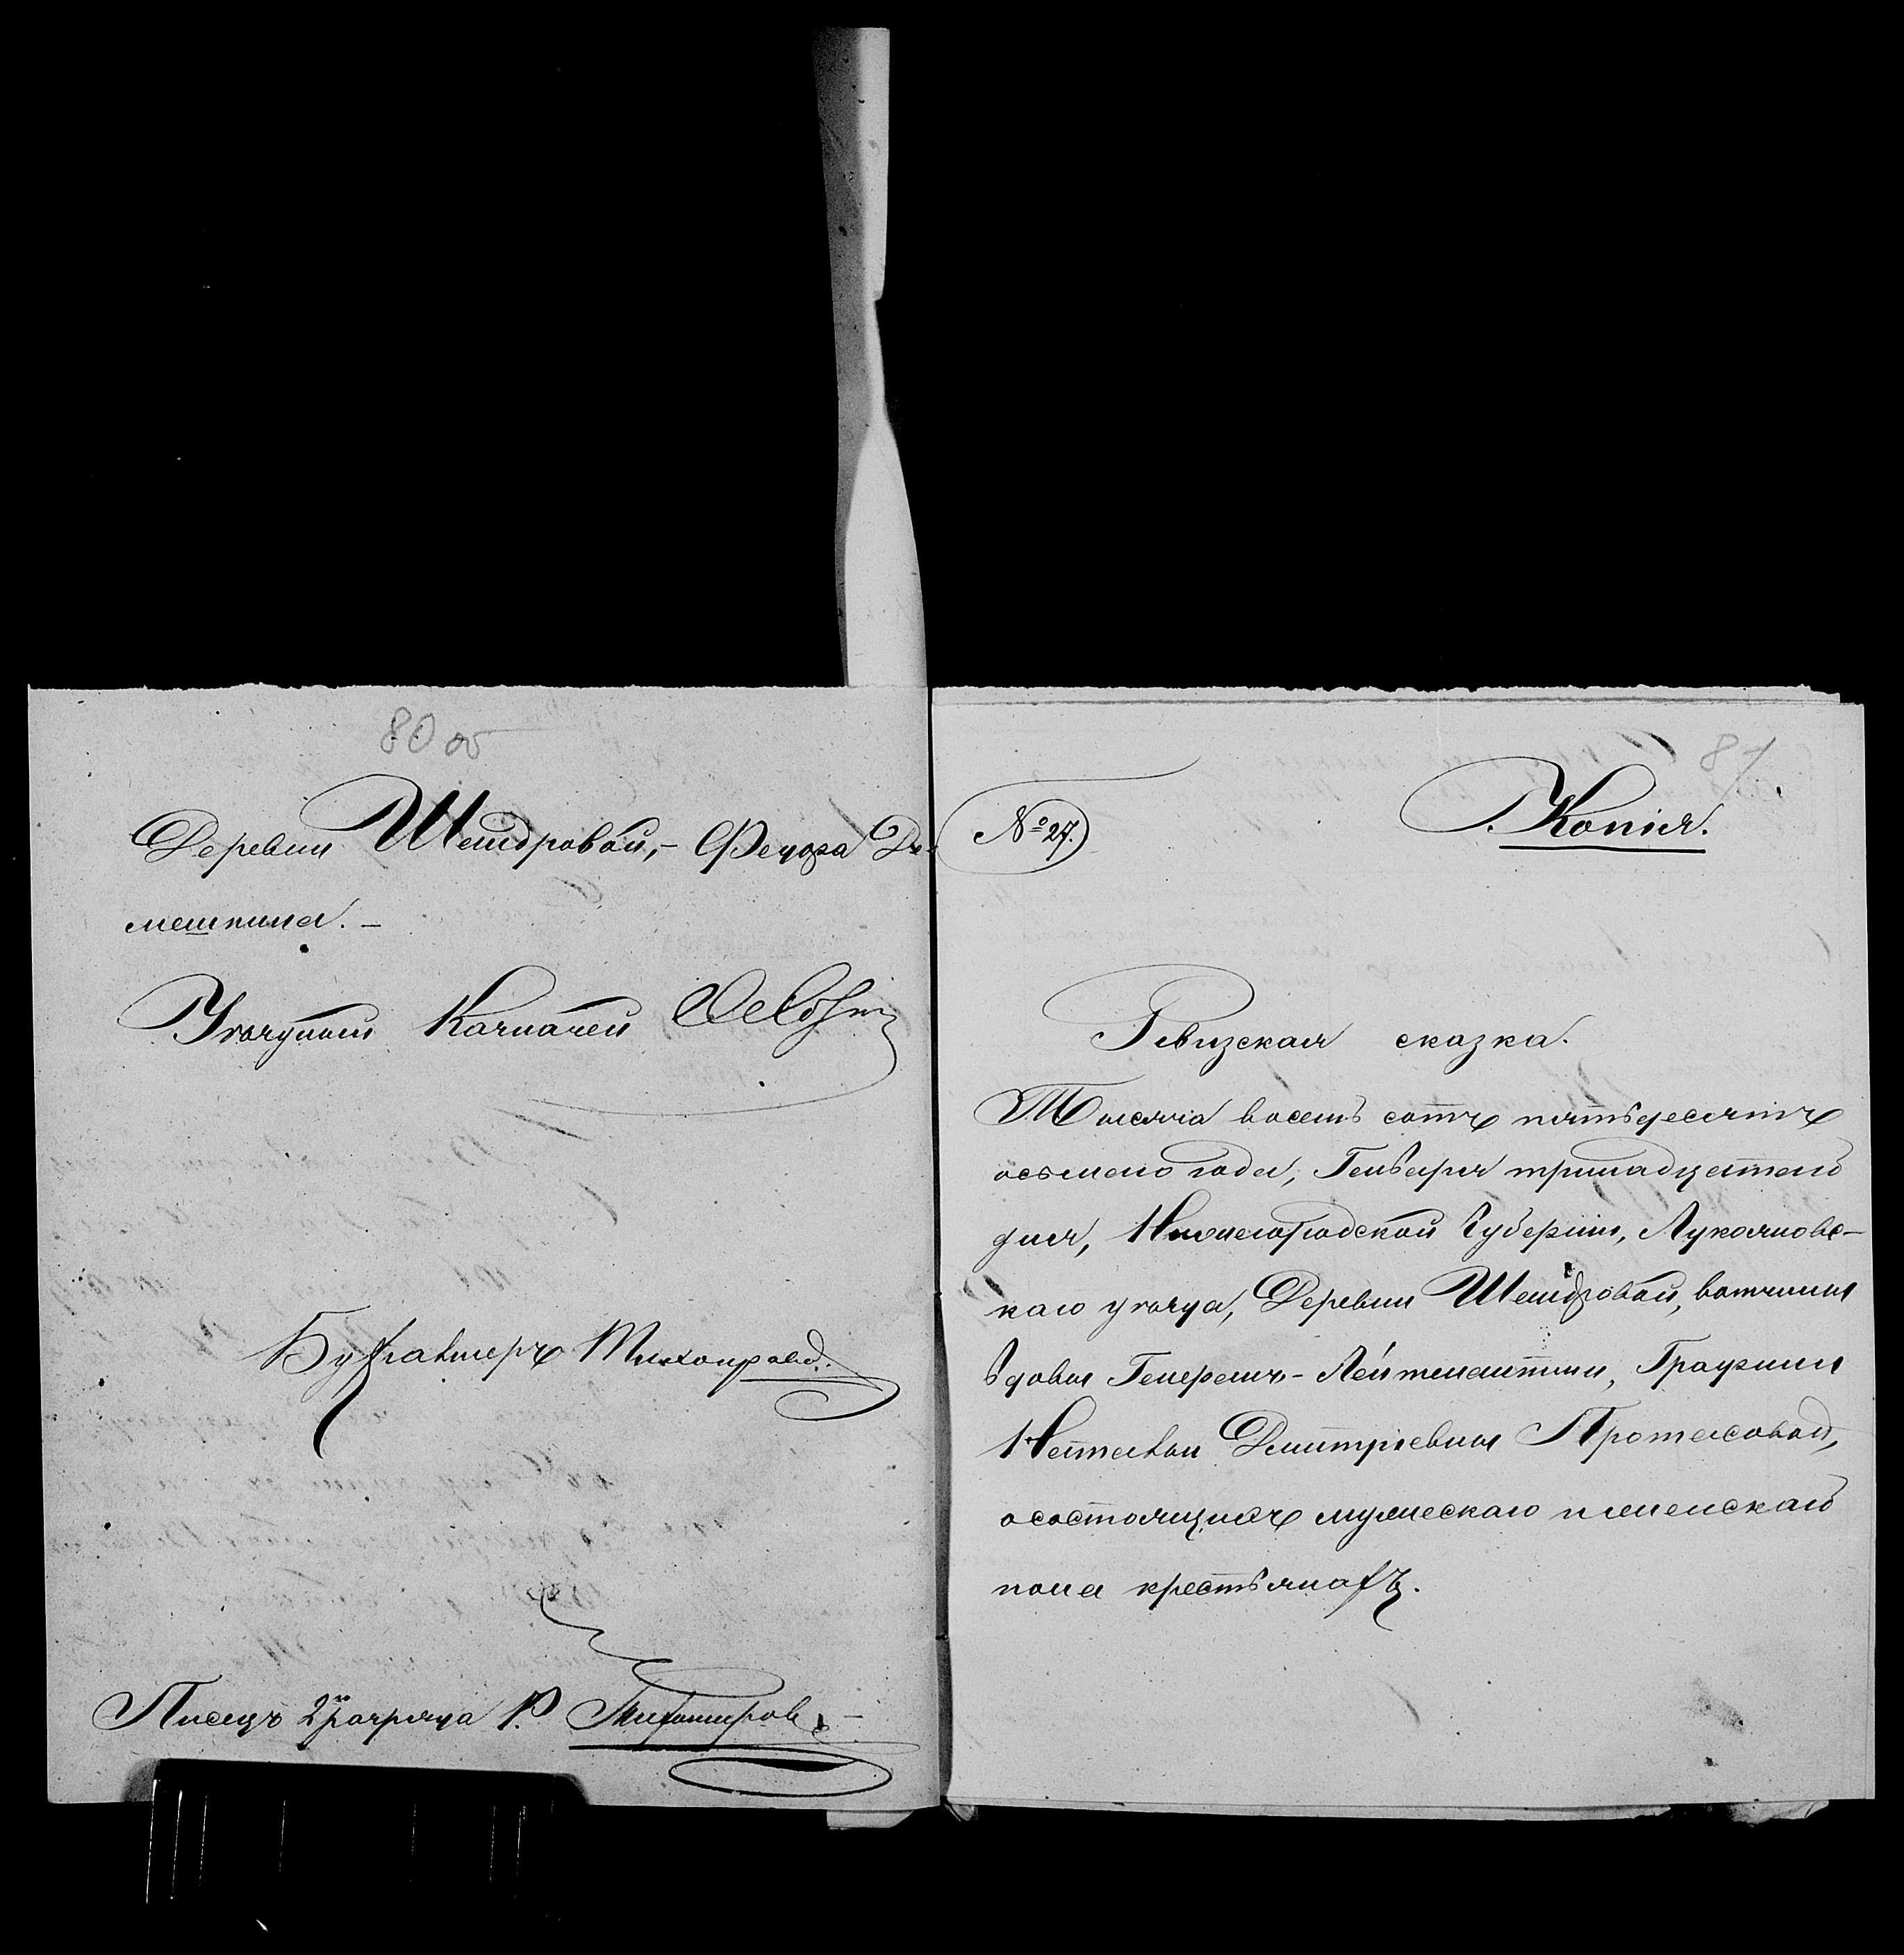 80 об
Деревни Шендровой, - Федора Де-
мешкина. -
Уѣздный Казначей
Бухгалтеръ Тихонравов.
Писецъ 2го разряда Р. Тихомировъ
81
№ 27.
Копія.
Ревизская сказка.
Тысяча восемь сотъ пятьдесятъ
осьмаго года, Генваря тринадцатаго
дня, Нижегородской Губерніи, Лукояновс-
каго уѣзда, Деревни Шендровой, вотчины
вдовы Генералъ-Лейтенантши, Графини
Натальи Дмитріевны Протасовой,
осостоящихъ мужескаго иженскаго
пола крестьянахъ.